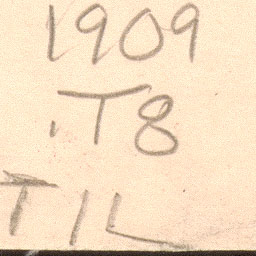 1909
.T8
T1L